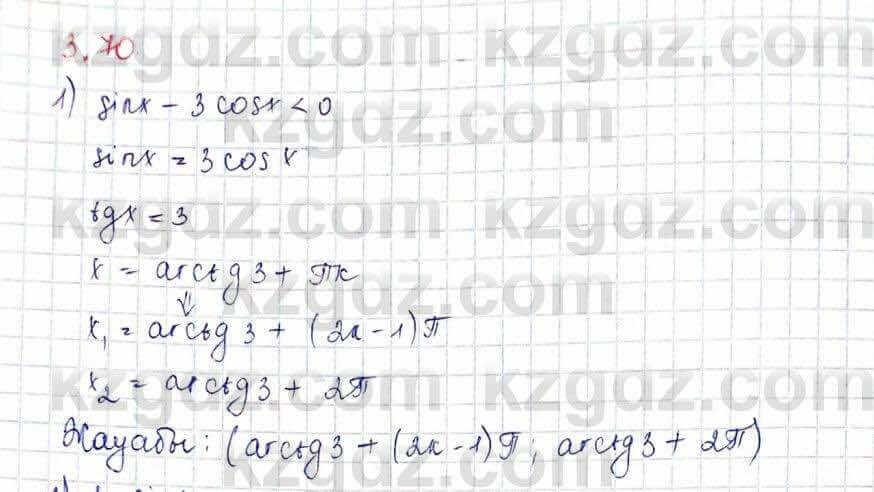 3.70
1) sinx - 3 cosx < 0
sinx = 3 cos x
tgx = 3
x = arctg 3 + πk
⇓
x₁ = arctg 3 + (2k - 1)π
x₂ = arctg 3 + 2π
Жауабы: (arctg 3 + (2k - 1)π; arctg 3 + 2π)
kzgdz.com kzgdz.com
kzgdz.com
kzgdz.com kzgdz.com
kzgdz.com
kzgdz.com kzgdz.com